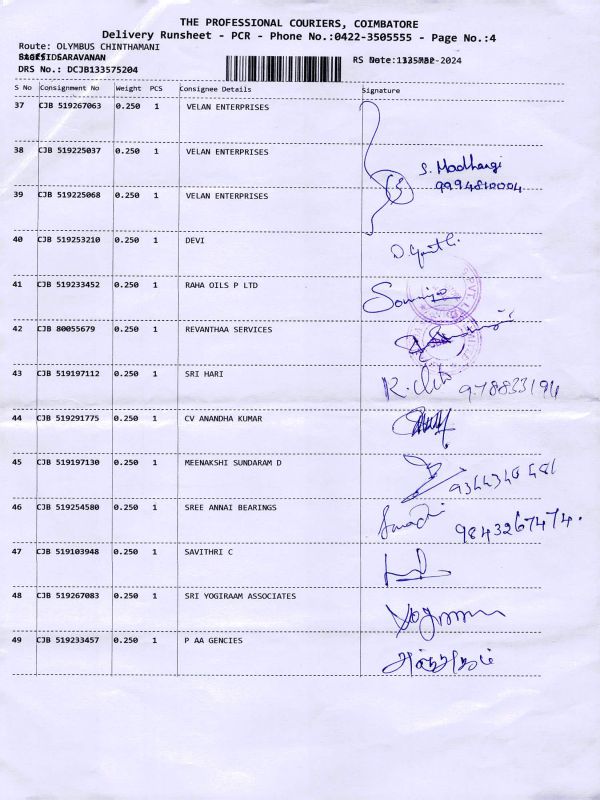 THE PROFESSIONAL COURIERS, COIMBATORE
Delivery Runsheet - PCR - Phone No.:0422-3505555 - Page No.:4
Route: OLYMBUS CHINTHAMANI
SARAVANAN
DRS No.: DCJB133575204
S No Consignment No Weight PCS Consignee Details Signature
37 CJB 519267063 0.250 1 VELAN ENTERPRISES
38 CJB 519225037 0.250 1 VELAN ENTERPRISES
S. Madhangi
9994810004
39 CJB 519225068 0.250 1 VELAN ENTERPRISES
40 CJB 519253210 0.250 1 DEVI
41 CJB 519233452 0.250 1 RAHA OILS P LTD
42 CJB 80055679 0.250 1 REVANTHAA SERVICES
43 CJB 519197112 0.250 1 SRI HARI
978833194
44 CJB 519291775 0.250 1 CV ANANDHA KUMAR
45 CJB 519197130 0.250 1 MEENAKSHI SUNDARAM D
46 CJB 519254580 0.250 1 SREE ANNAI BEARINGS
9843267474.
47 CJB 519103948 0.250 1 SAVITHRI C
48 CJB 519267083 0.250 1 SRI YOGIRAAM ASSOCIATES
49 CJB 519233457 0.250 1 P AA GENCIES